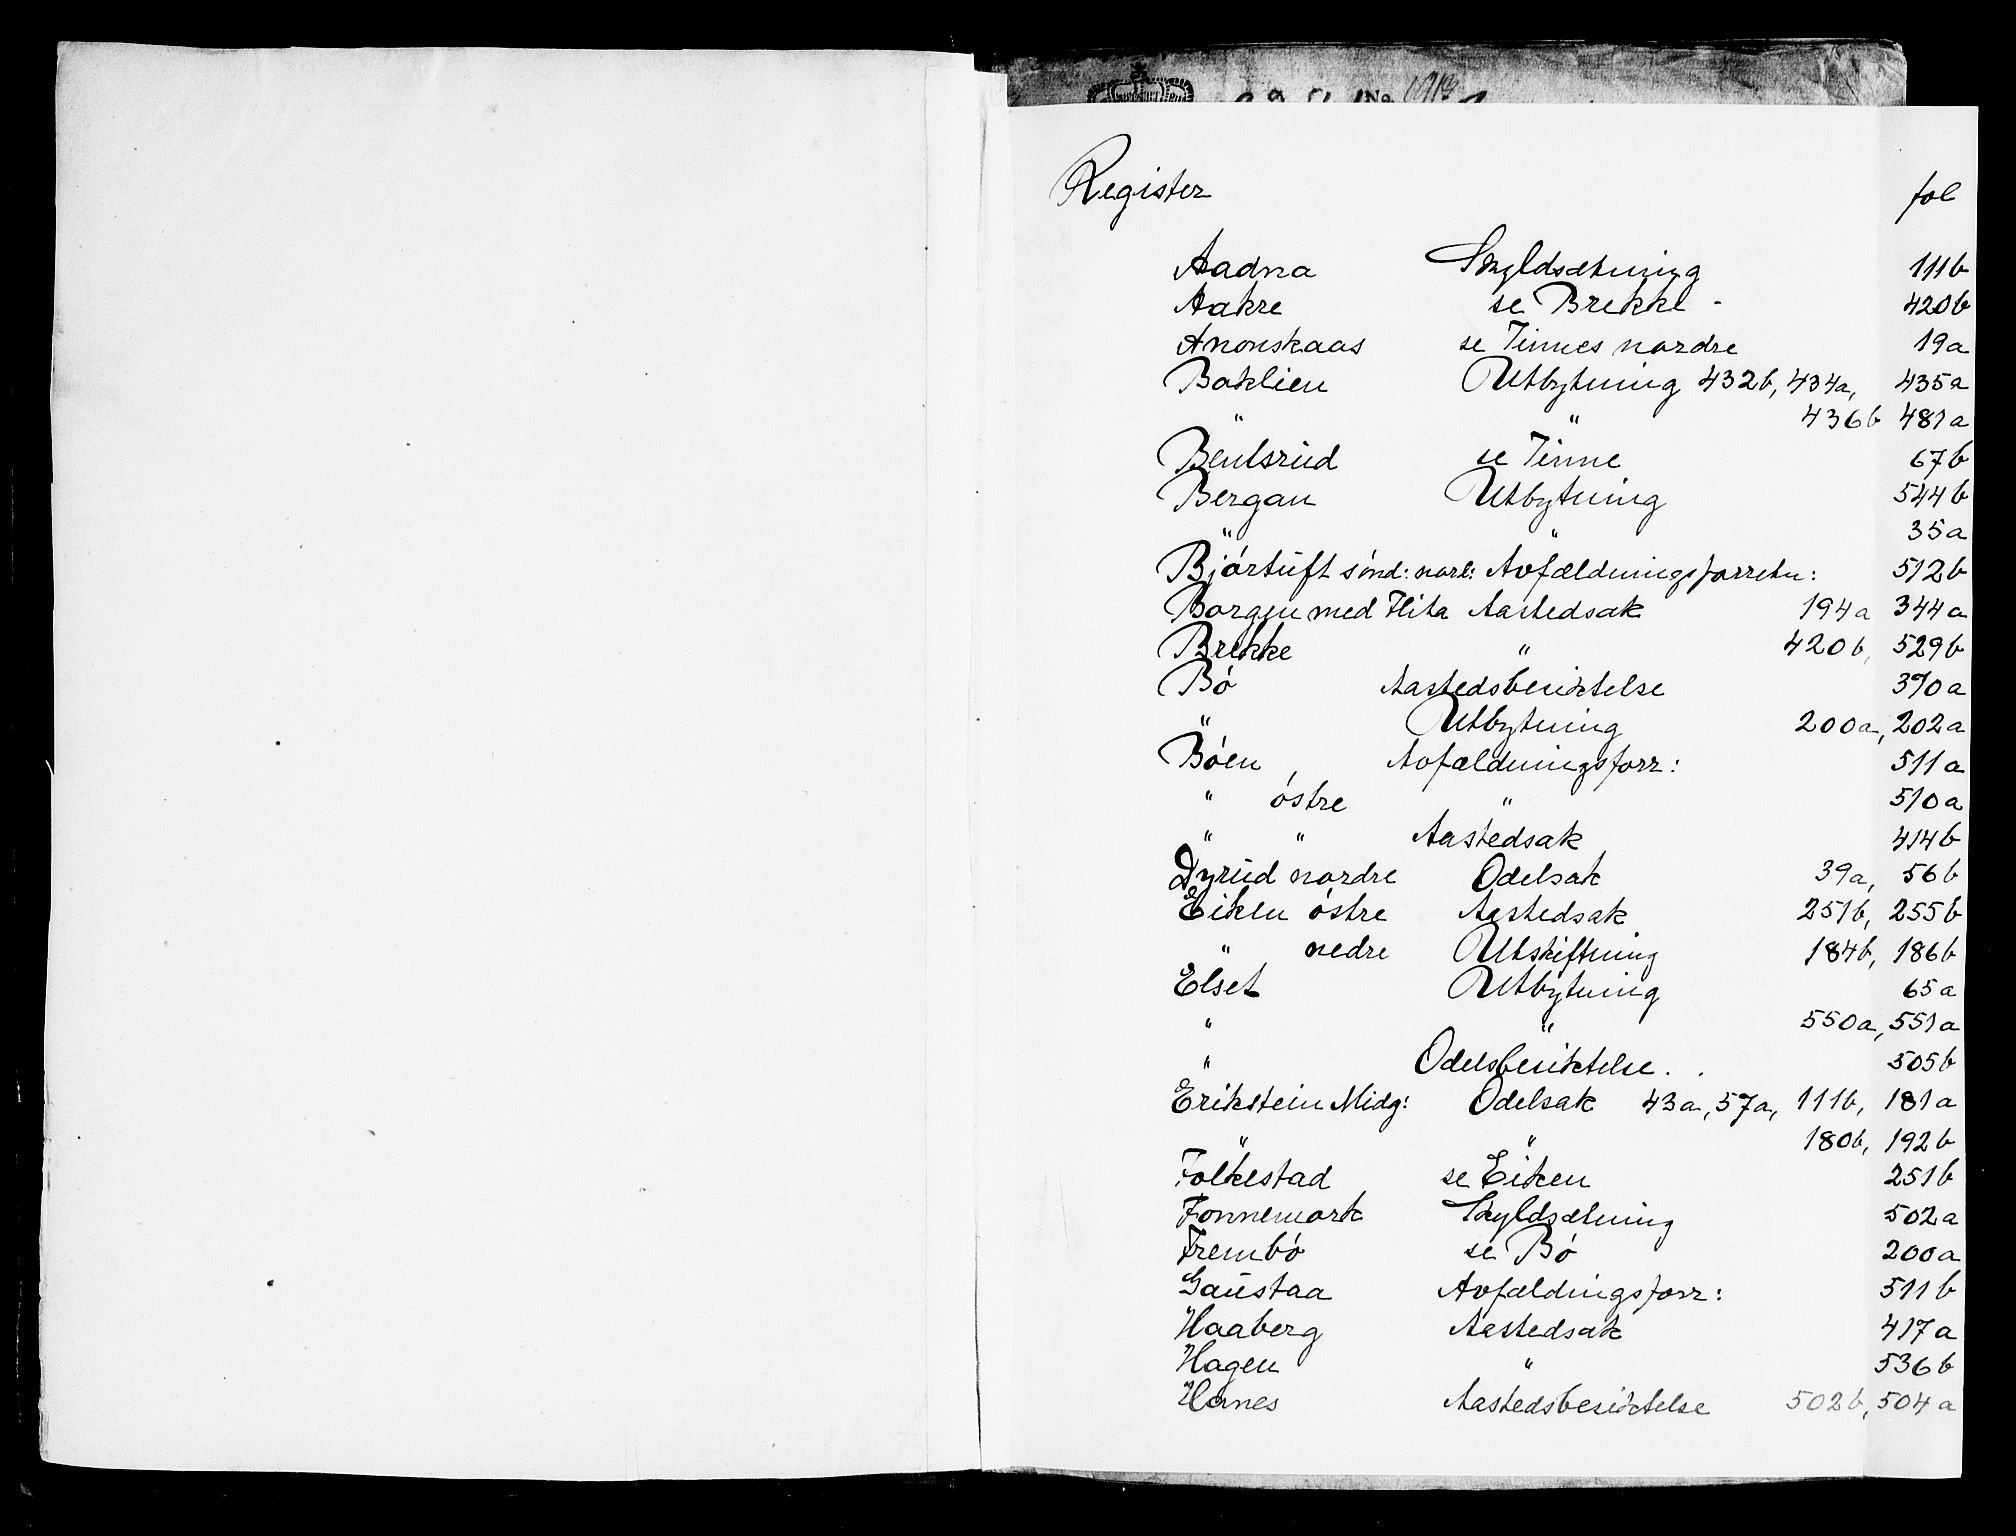 No. 1913
Register fol
Aadna Skyldsætning 111b
Aakre se Brekke - 420b
Anonskaas se Tinnes nordre 19a
Baklien Utbytning 432b, 434a, 435a
" " 436b 481a
Bentsrud se Tinne 67b
Bergan Utbytning 544b
" " 35a
Bjórtuft sónd: norl: Avfældningsforretn: 512b
Borgen med Hita Aastedsak 194a 344a
Brekke " 420b, 529b
Bó Aastedsbesiktelse 390a
" Utbytning 200a, 202a
Bóen Avfældningsforr: 511a
" óstre " 510a
" " Aastedsak 414b
Dyrud nordre Odelsak 39a, 56b
Eiken óstre Aastedsak 251b, 255b
" nedre Utskiftning 184b, 186b
Elset Utbytning 65a
" " 550a, 551a
" Odelsbesiktelse . . 505b
Erikstein Midg: Odelsak 43a, 57a, 111b, 181a
" " 180b, 192b
Folkestad se Eiken 251b
Fonnemork Skyldsætning 502a
Frembó se Bó 200a
Gaustaa Avfældingsforr: 511b
Haaberg Aastedsak 417a
Hagen " 536b
Hanes Aastedsbesiktelse 502b, 504a